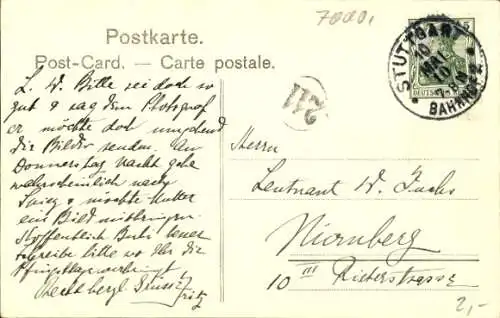 7000.
Postkarte.
Post-Card. — Carte postale.
STUTTGART
10 MAI 10
BAHNHOF
211
L. W. Bitte sei doch so
gut & sag dem Photograf
er möchte doch umgehend
die Bilder senden. Am
Donnerstag Nacht gehe
wahrscheinlich nach
& möchte Mutter
ein Bild mitbringen.
Hoffentlich
schreibe bitte wo Ihr die
Herrn
Leutnant W. Fuchs
Nürnberg
10 III
2,-